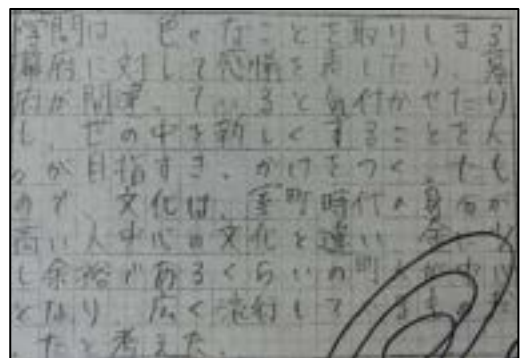 学問は、色々なことを取りしまる
幕府に対して感情を表したり、幕
府が間違っていると気付かせたり
し、世の中を新しくすることを人
々が目指すき、かけをつくったも
ので、文化は、室町時代の身分が
高い人中心の文化と違い、少
し余裕であるくらいの町人が中心
となり、広く流行して
ったと考えた。